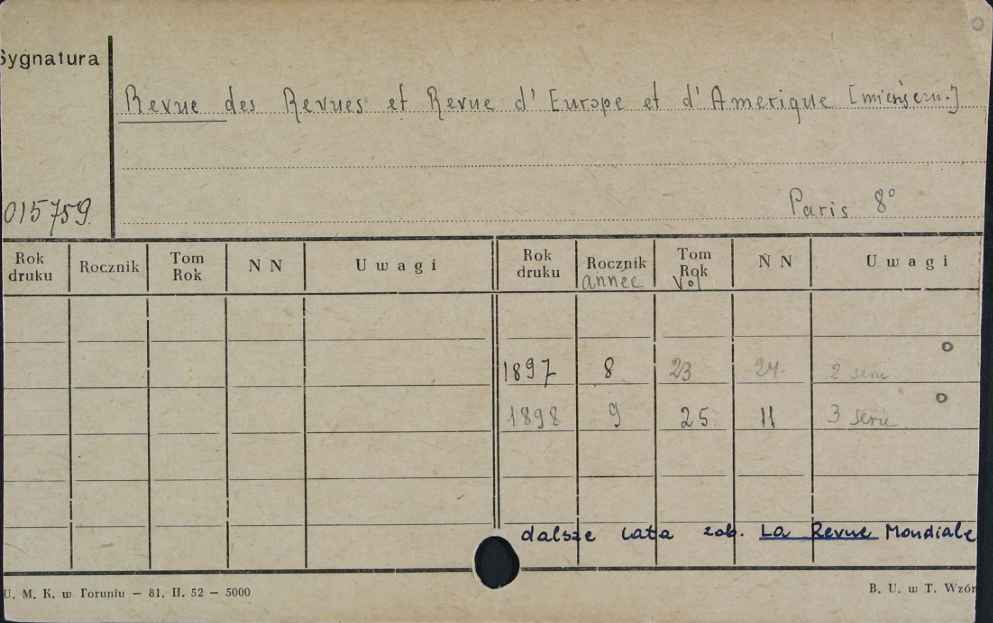 Sygnatura
Revue des Revues et Revue d'Europe et d'Amerique
015759
Paris 8°
Rok druku Rocznik Tom Rok N N Uwagi Rok druku Rocznik annee Tom Rok Vol N N Uwagi
1897 8 23 24 2 serie
1898 9 25 11 3 serie
dalsze lata zob. La Revue Mondiale
U. M. K. w Toruniu — 81. II. 52 — 5000 B. U. w T. Wzór